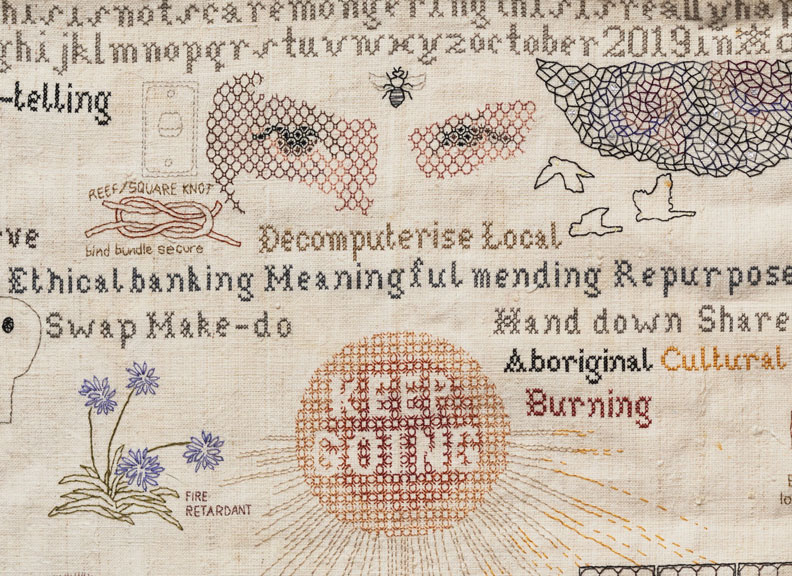 hisisnotscaremongeringthisisreallyha
ghijklmnopqrstuvwxyzoctober2019in
-telling
REEF/SQUARE KNOT
bind bundle secure
rve
Decomputerise Local
Ethical banking Meaningful mending Repurpose
Swap Make-do
Hand down Share
Aboriginal Cultural
Burning
KEEP
GOING
FIRE
RETARDANT